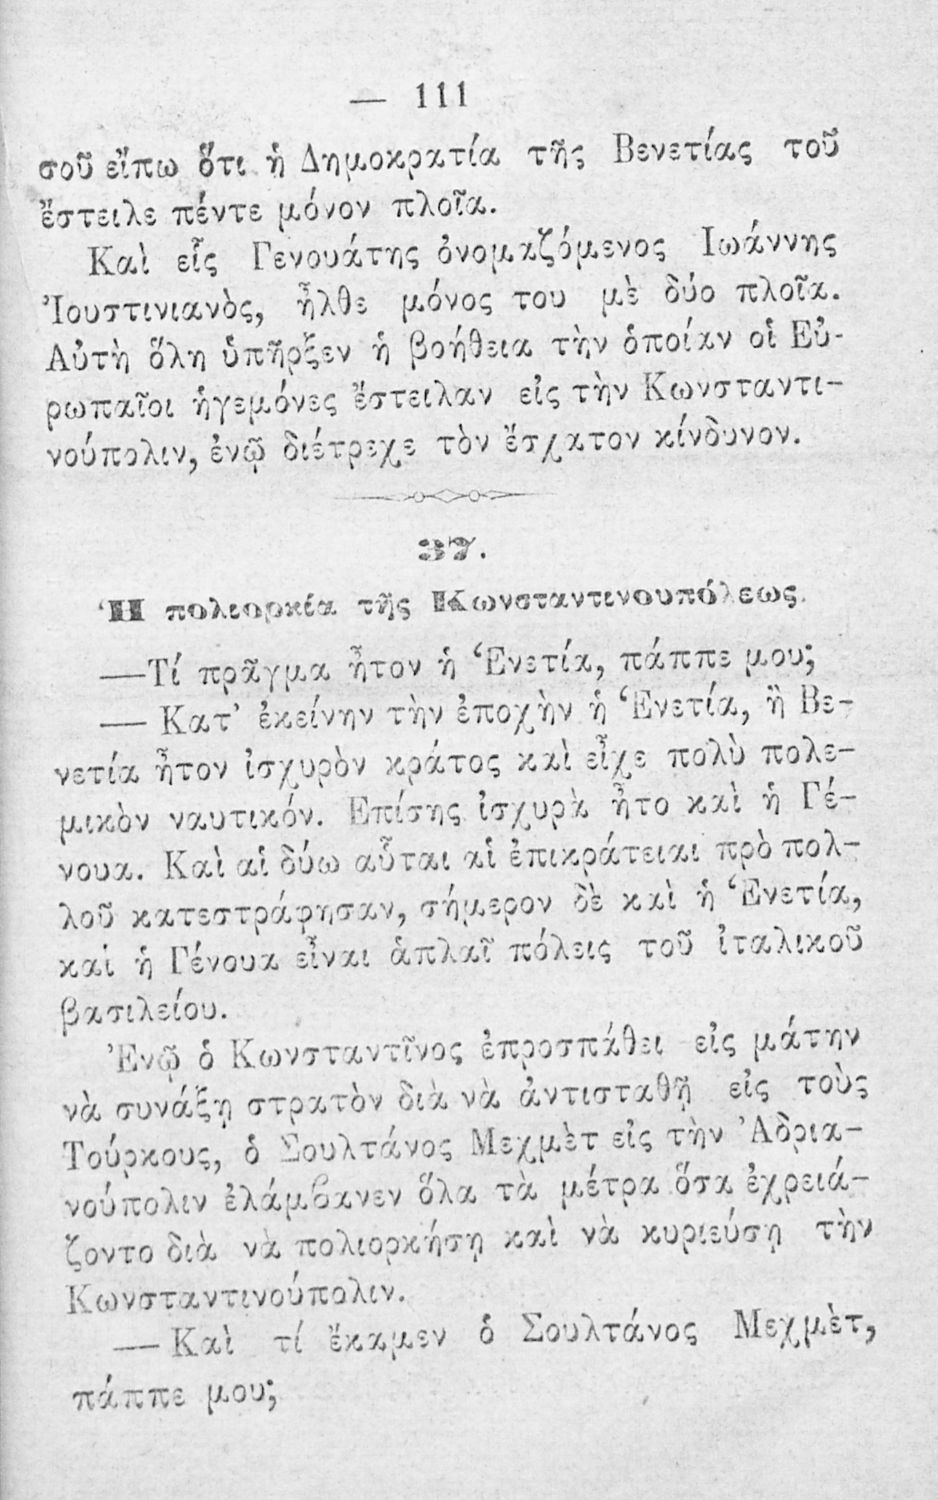 — 111
σοῦ εἴπω ὅτι ἡ Δημοκρατία τῆς Βενετίας τοῦ
ἔστειλε πέντε μόνον πλοῖα.
Καὶ εἷς Γενουάτης ὀνομαζόμενος Ἰωάννης
Ἰουστινιανὸς, ἦλθε μόνος του μὲ δύο πλοῖα.
Αὐτὴ ὅλη ὑπῆρξεν ἡ βοήθεια τὴν ὁποίαν οἱ Εὐ-
ρωπαῖοι ἡγεμόνες ἔστειλαν εἰς τὴν Κωνσταντι-
νούπολιν, ἐνῷ διέτρεχε τὸν ἔσχατον κίνδυνον.
37.
Ἡ πολιορκία τῆς Κωνσταντινουπόλεως.
—Τί πρᾶγμα ἦτον ἡ Ἑνετία, πάππε μου;
— Κατ’ ἐκείνην τὴν ἐποχὴν ἡ Ἑνετία, ἢ Βε-
νετία ἦτον ἰσχυρὸν κράτος καὶ εἶχε πολὺ πολε-
μικὸν ναυτικόν. Ἐπίσης ἰσχυρὰ ἦτο καὶ ἡ Γέ-
νουα. Καὶ αἱ δύω αὗται αἱ ἐπικράτειαι πρὸ πολ-
λοῦ κατεστράφησαν, σήμερον δὲ καὶ ἡ Ἑνετία,
καὶ ἡ Γένουα εἶναι ἁπλαῖ πόλεις τοῦ ἰταλικοῦ
βασιλείου.
Ἐνῷ ὁ Κωνσταντῖνος ἐπροσπάθει εἰς μάτην
νὰ συνάξῃ στρατὸν διὰ νὰ ἀντισταθῇ εἰς τοὺς
Τούρκους, ὁ Σουλτάνος Μεχμὲτ εἰς τὴν Ἀδρια-
νούπολιν ἐλάμβανεν ὅλα τὰ μέτρα ὅσα ἐχρειά-
ζοντο διὰ νὰ πολιορκήσῃ καὶ νὰ κυριεύσῃ τὴν
Κωνσταντινούπολιν.
— Καὶ τί ἔκαμεν ὁ Σουλτάνος Μεχμὲτ,
πάππε μου;